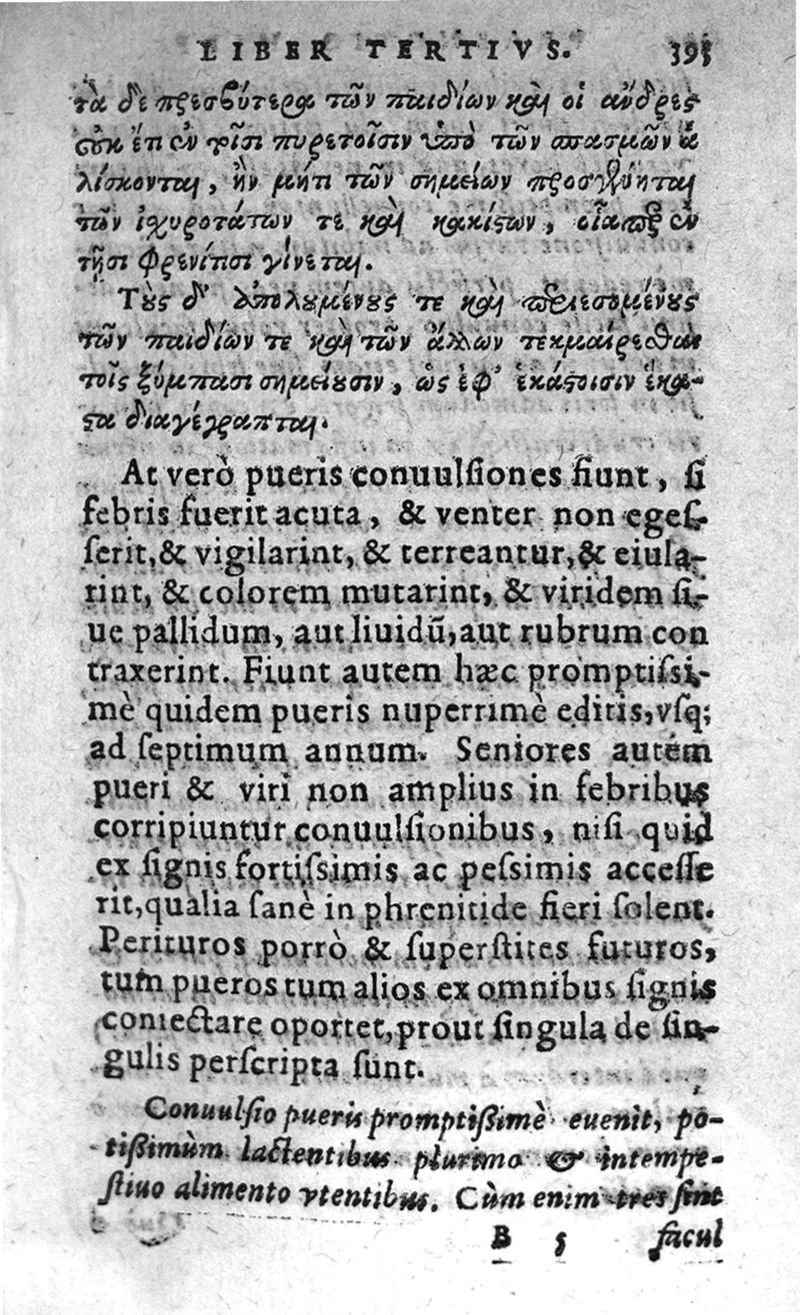 LIBER TERTIVS. 395
τὰ δὲ πρεσβύτερα τῶν παιδίων καὶ οἱ ἄνδρες
οὐκ ἔτι ἐν τοῖσι πυρετοῖσιν ὑπὸ τῶν σπασμῶν ἁ
λίσκονται, ἢν μήτι τῶν σημείων προσγένηται
τῶν ἰχυροτάτων τε καὶ κακίστων, οἷαπερ ἐν
τῇσι φρενίτισι γίνεται.
Τοὺς δ' ἀπολουμένους τε καὶ περιεσομένους
τῶν παιδίων τε καὶ τῶν ἄλλων τεκμαίρεσθαι
τοῖς ξύμπασι σημείοισιν, ὡς ἐφ' ἑκάστοισιν ἕκα-
στα διαγέγραπται.
At verò pueris conuulſiones fiunt, ſi
febris fuerit acuta, & venter non egeſ-
ſerit, & vigilarint, & terreantur, & eiula-
rint, & colorem mutarint, & viridem ſi-
ue pallidum, aut liuidũ, aut rubrum con
traxerint. Fiunt autem hæc promptiſsi-
mè quidem pueris nuperrimè editis, vſq;
ad ſeptimum annum. Seniores autem
pueri & viri non amplius in febribus
corripiuntur conuulſionibus, niſi quid
ex ſignis fortiſsimis ac peſsimis acceſſe
rit, qualia ſanè in phrenitide fieri ſolent.
Perituros porrò & ſuperſtites futuros,
tum pueros tum alios ex omnibus ſignis
coniectare oportet, prout ſingula de ſin-
gulis perſcripta ſunt.
Conuulſio pueris promptißimè euenit, po-
tißimùm lactentibus plurimo & intempe-
ſtiuo alimento vtentibus. Cùm enim tres ſint
B 5 facul